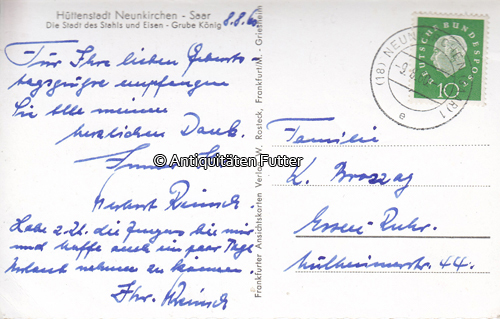 Hüttenstadt Neunkirchen - Saar
Die Stadt des Stahls und Eisen - Grube König
8.8.60
Für Ihre lieben Geburts-
tagsgrüße empfangen
Sie alle meinen
herzlichen Dank.
© Antiquitäten Futter
Herbert Reinsch.
Habe z. Zt. die Jungens bei mir
und hoffe auch ein paar Tage
Urlaub nehmen zu können.
Ihr Reinsch
Frankfurter Ansichtskarten Verlag W. Rosteck, Frankfurt/M. - Griesheim
(18) NEUN
e
DEUTSCHE BUNDESPOST
10
Familie
K.
Essen-Ruhr.
Mülheimerstr. 44.